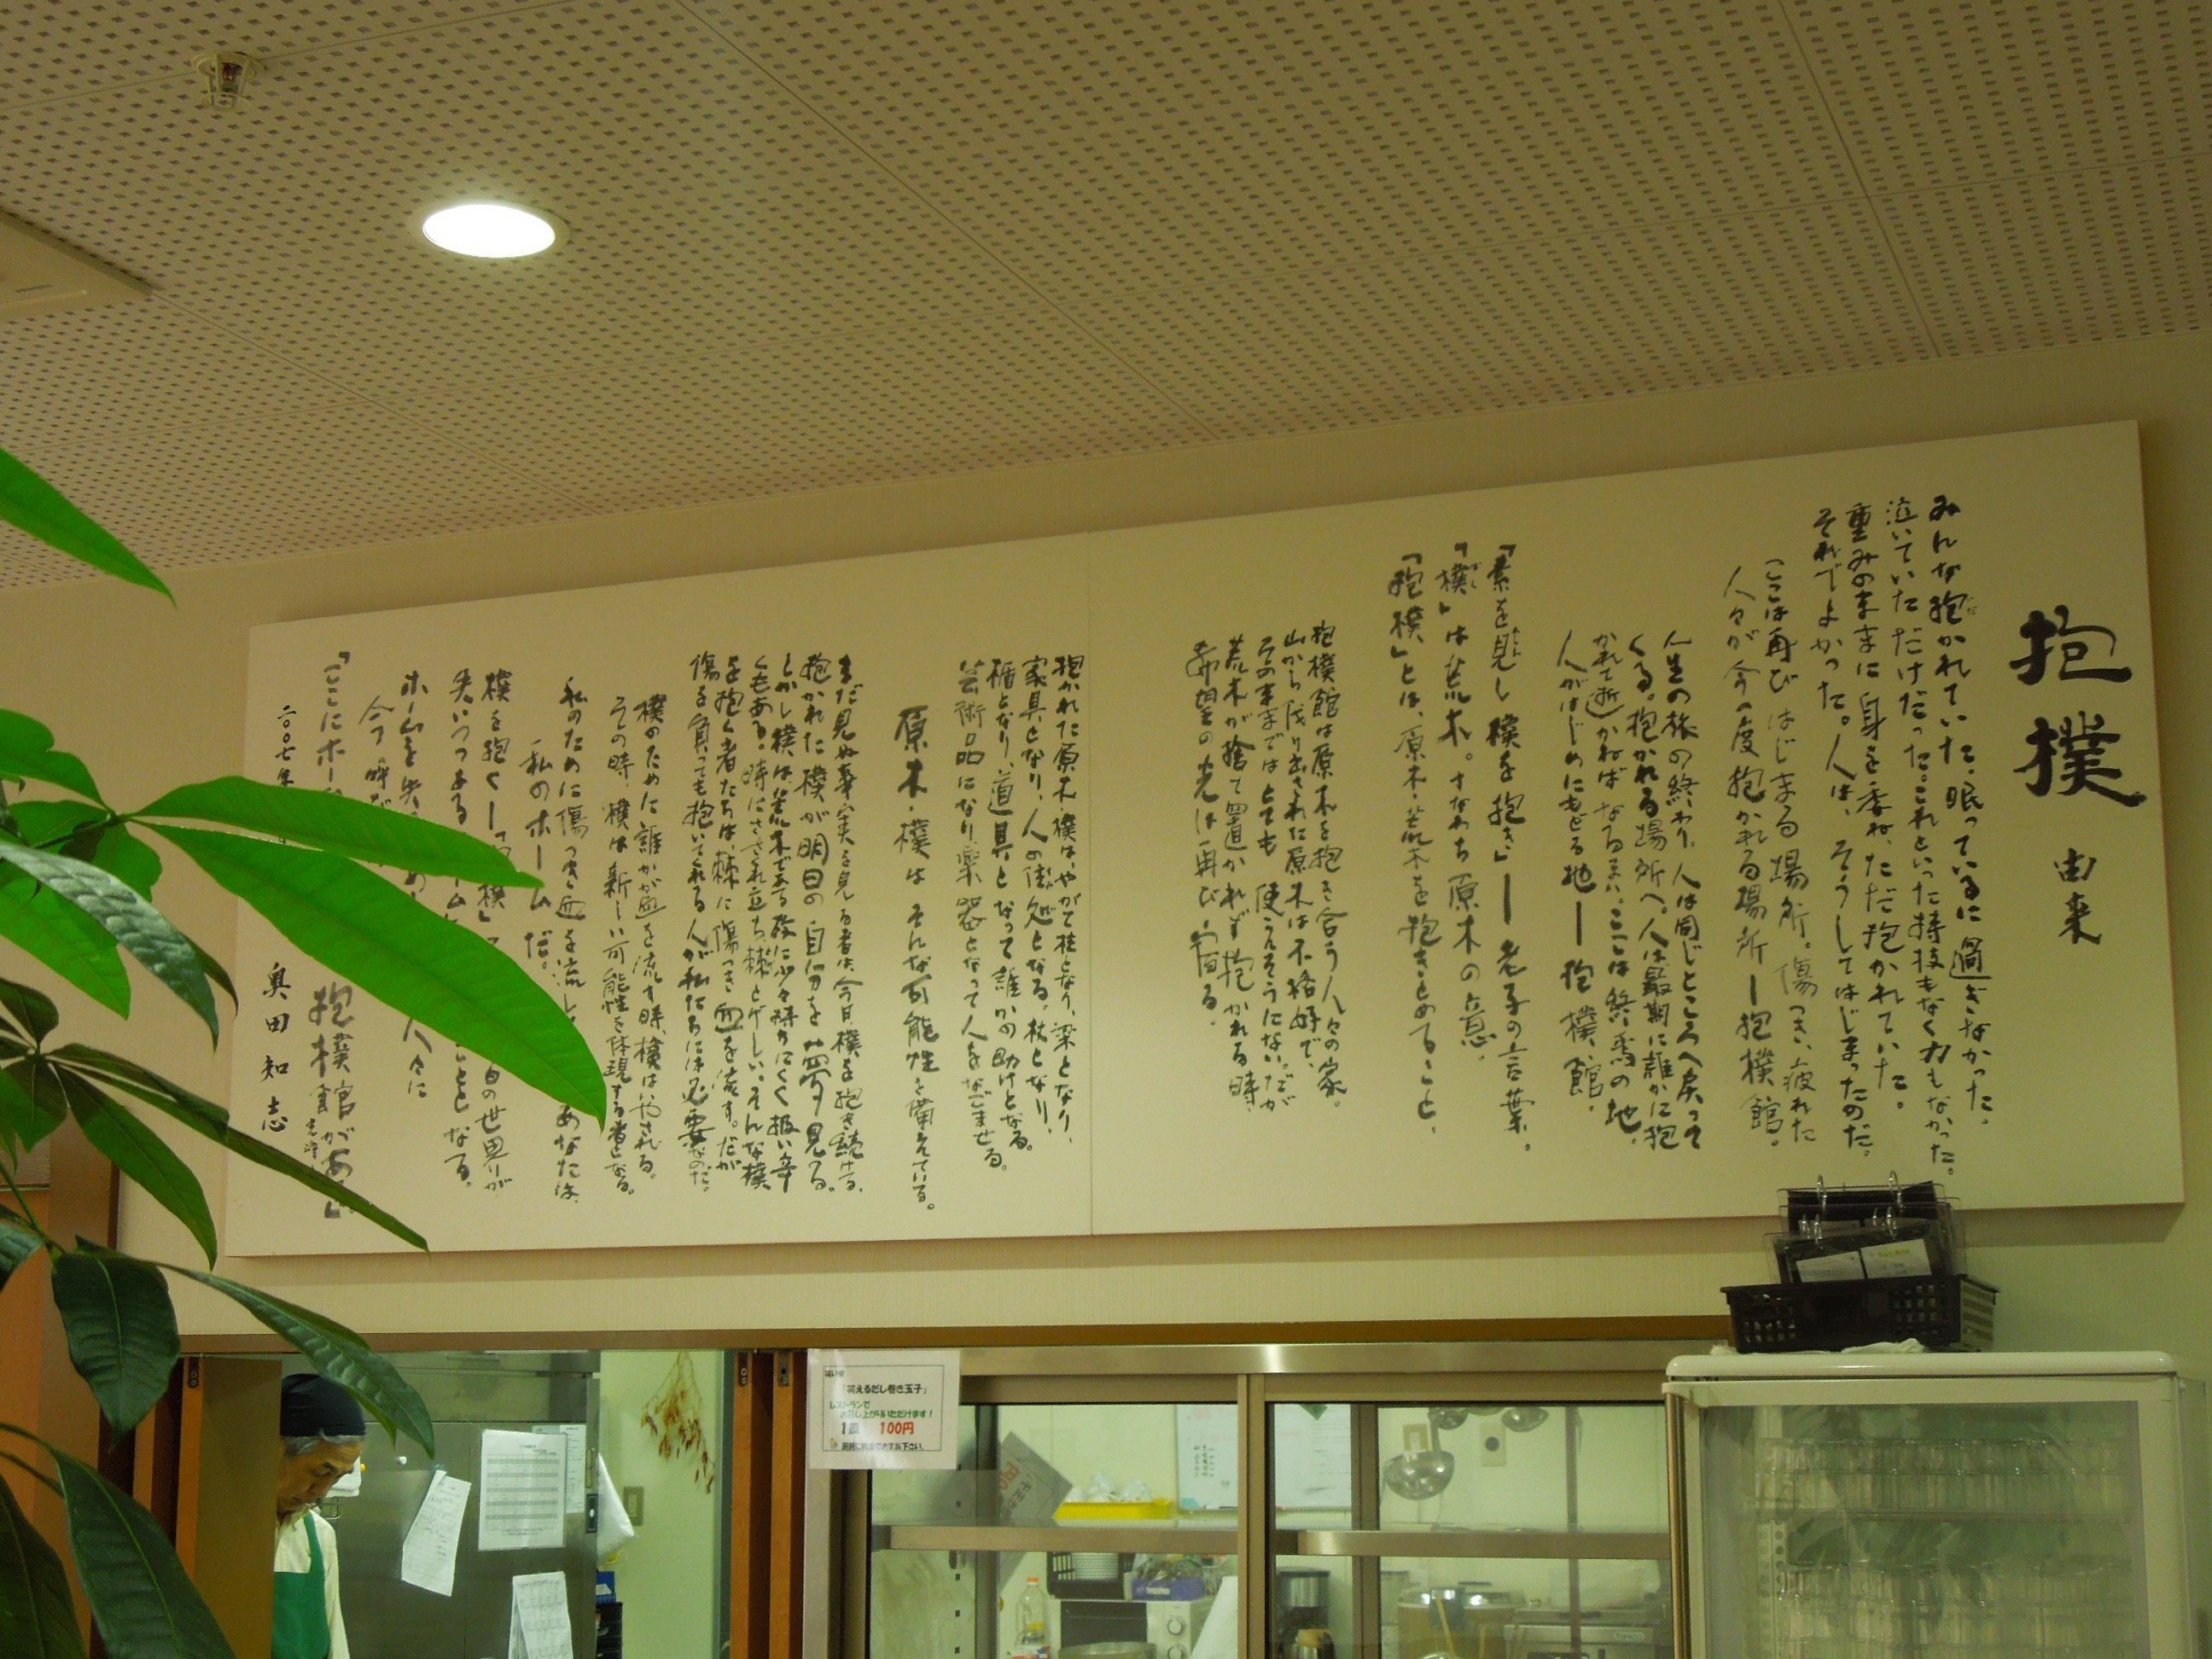 抱樸 由来
みんな抱かれていた。眠っているに過ぎなかった。
泣いていただけだった。これといった特技もなく力もなかった。
重みのままに身を委ね、ただ抱かれていた。
それでよかった。人は、そうしてはじまったのだ。
ここは再びはじまる場所。傷つき、疲れた
人々が今一度抱かれる場所―抱樸館。
人生の旅の終わり、人は同じところへ戻って
くる。抱かれる場所へ。人は最期に誰かに抱
かれて逝かねばなるまい。ここは終焉の地。
人がはじめにもどる地―抱樸館。
「素を見し樸を抱き」―老子の言葉。
「樸」は荒木。すなわち原木の意。
「抱樸」とは、原木・荒木を抱きとめること。
抱樸館は原木を抱き合う人々の家。
山から伐り出された原木は不格好で、
そのままではとても使えそうにない。だが
荒木が捨て置かれず抱かれる時
希望の光は再び宿る。
抱かれた原木・樸は、やがて柱となり、梁となり、
家具となり、人の住処となる。杖となり、
楯となり、道具となって誰かの助けとなる。
芸術品になり、楽器となって人をなごませる。
原木・樸はそんな可能性を備えている。
まだ見ぬ事実を見る者は、今日樸を抱き続ける。
抱かれた樸が明日の自分を夢見る。
しかし樸は荒木である故に少々持ちにくく扱い辛
くもある。時にささくれ立ち、棘とゲしい。そんな樸
を抱く者たちは、棘に傷つき血を流す。だが
傷を負っても抱いてくれる人が私たちには必要なのだ。
樸のために誰かが血を流す時、樸はいやされる。
その時、樸は新しい可能性を体現する者となる。
私のために傷つき血を流し あなたは、
私のホームだ。
樸を抱く―「 樸」 日の世界が
失いつつある ーム ことと なる。
ホームを失 人々に
今 呼
「ここにホー 抱樸館がある」
二〇〇七年 月 奥田知志
「笑えるだし巻き玉子」
レストランで
お召し上がりいただけます！
1皿 100円